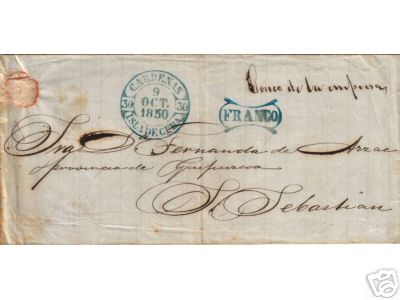 CARDENAS
9
OCT.
1850
30 30
ISLA DE CUBA
FRANCO
Correo de la empresa
Sra. Da. Fernanda de Arzac
Provincia de Guipuzcoa
Sn. Sebastian